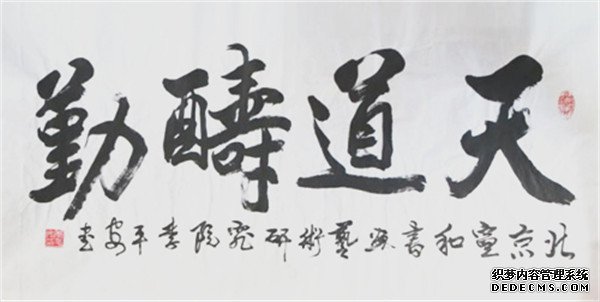 天道醻勤
北京宣和書画藝術研究院李平安書
织梦内容管理系统
DEDECMS.COM